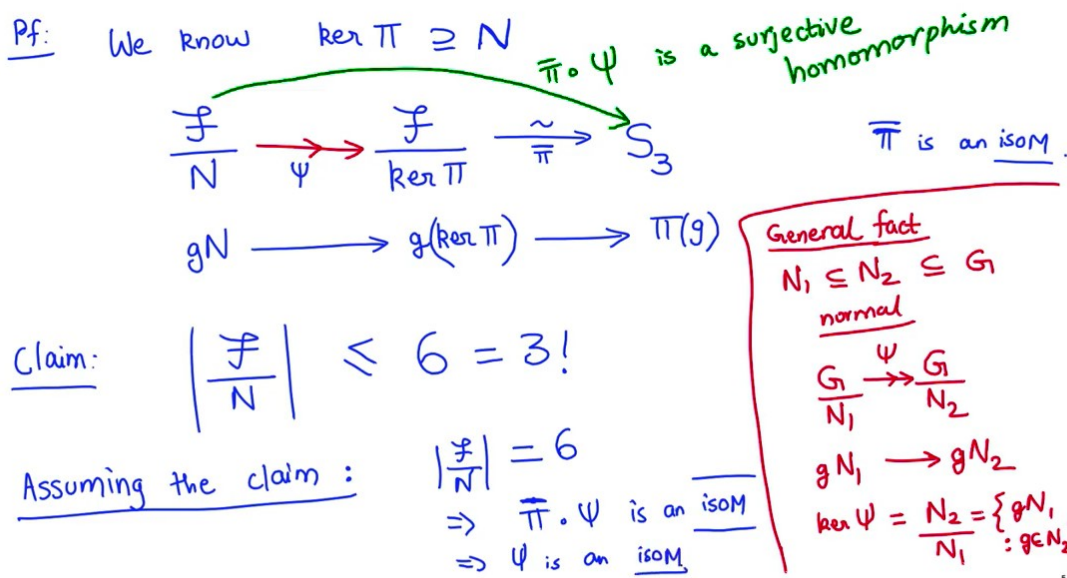 Pf: We know ker π ⊇ N
π̄∘ψ is a surjective
homomorphism
F/N ↠ψ F/ker π ~→π̄ S₃
π̄ is an isoM.
gN → g(ker π) → π(g)
Claim: |F/N| ≤ 6 = 3!
Assuming the claim: |F/N| = 6
⇒ π̄∘ψ is an isoM
⇒ ψ is an isoM.
General fact
N₁ ⊆ N₂ ⊆ G
normal
G/N₁ ↠ψ G/N₂
gN₁ → gN₂
ker ψ = N₂/N₁ = {gN₁
: g∈N₂